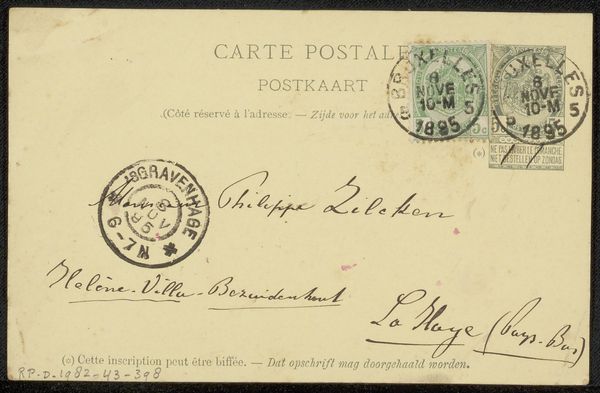 CARTE POSTALE
POSTKAART
(Côté réservé à l'adresse. — Zijde voor het
BRUXELLES 5
8
NOVE
10-M
1895
5c
BRUXELLES 5
8
NOVE
10-M
5
1895
(*)
NE PAS LIVRER LE DIMANCHE
NIET BESTELLEN OP ZONDAG
'SGRAVENHAGE
8
NOV
95
6-7N
Monsieur Philippe Zilcken
Hélène-Villa-Bezuidenhout
La Haye (Pays-Bas)
(*) Cette inscription peut être biffée. — Dat opschrift mag doorgehaald worden.
RP-D-1982-43-398